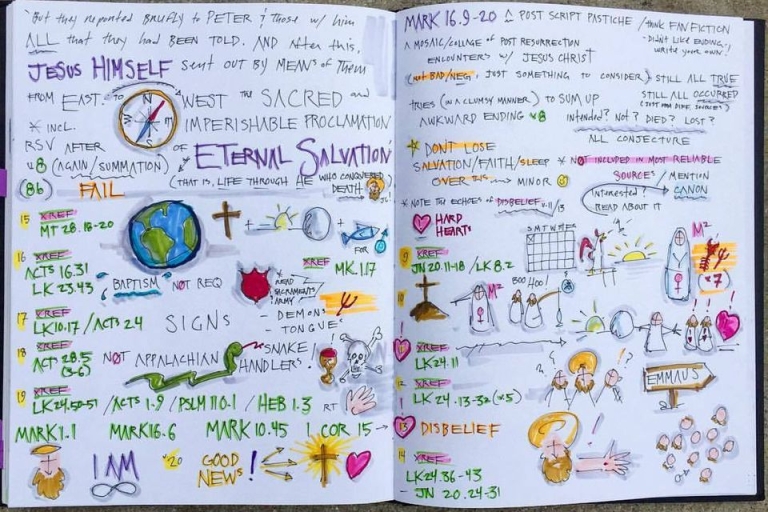 "But they reported briefly to PETER & those w/ him
ALL that they had BEEN TOLD. AND after this,
JESUS HIMSELF sent out BY MEANS of them
FROM EAST to WEST the SACRED and
* INCL. IMPERISHABLE PROCLAMATION
RSV AFTER OF ETERNAL SALVATION"
v8 (AGAIN/SUMMATION)
(8b) FAIL (THAT IS, LIFE THROUGH HE WHO CONQUERED
DEATH
N
E
S
W
15 XREF
MT 28.18-20
+ + +
FOR
16 XREF
ACTS 16.31
LK 23.43
BAPTISM NOT REQ
XREF
MK 1.17
* READ SACRAMENTS
ARMY
17 XREF
LK 10.17 / ACTS 2.4
SIGNS
- DEMONS
- TONGUES
18 XREF
ACT 28.5
(3-6)
NOT APPALACHIAN SNAKE HANDLERS.
19 XREF
LK 24.50-51 / ACTS 1.9 / PSLM 110.1 / HEB 1.3 RT
MARK 1.1 MARK 16.6 MARK 10.45 1 COR 15
I AM
v20 GOOD
NEWS!
MARK 16.9-20 A POST SCRIPT PASTICHE / THINK FAN FICTION
- DIDN'T LIKE ENDING..?
WRITE YOUR OWN!
A MOSAIC/COLLAGE OF POST RESURRECTION
ENCOUNTERS w/ JESUS CHRIST
(NOT BAD/NEG, JUST SOMETHING TO CONSIDER) STILL ALL TRUE
STILL ALL OCCURRED
TRIES (IN A CLUMSY MANNER) TO SUM UP
AWKWARD ENDING v8
INTENDED? NOT? DIED? LOST?
ALL CONJECTURE
DON'T LOSE
SALVATION/FAITH/SLEEP
OVER THIS MINOR
* NOT INCLUDED IN MOST RELIABLE
SOURCES / MENTION
CANON
INTERESTED?
READ ABOUT IT
* NOTE THE ECHOES OF DISBELIEF v.11/13
HARD
HEARTS
S M T W TH F S
M2
9 XREF
JN 20.11-18 / LK 8.2
x7
10
M2
BOO HOO!
11 XREF
LK 24.11
! !
12 XREF
LK 24.13-32 (*.5)
? ? ! ?
EMMAUS
13 DISBELIEF
14 XREF
LK 24.36-43
- JN 20.24-31